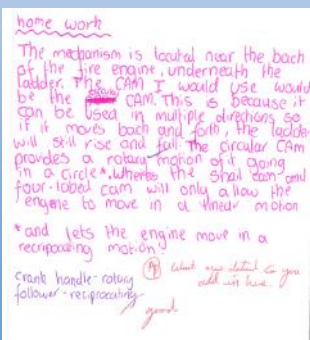 home work
The mechanism is located near the bach
of the fire engine, underneath the
ladder. The CAM I would use would
be the circular CAM. This is because it
can be used in multiple directions so
if it moves bach and forth, the ladder
will still rise and fall. The circular CAM
provides a rotary motion of it going
in a circle*, wheras the snail cam and
four-lobed cam will only allow the
engine to move in a linear motion
*and lets the engine move in a
recriprocating motion.
crank handle - rotary
follower - reciprocating
What new detail can you
add in here.
good